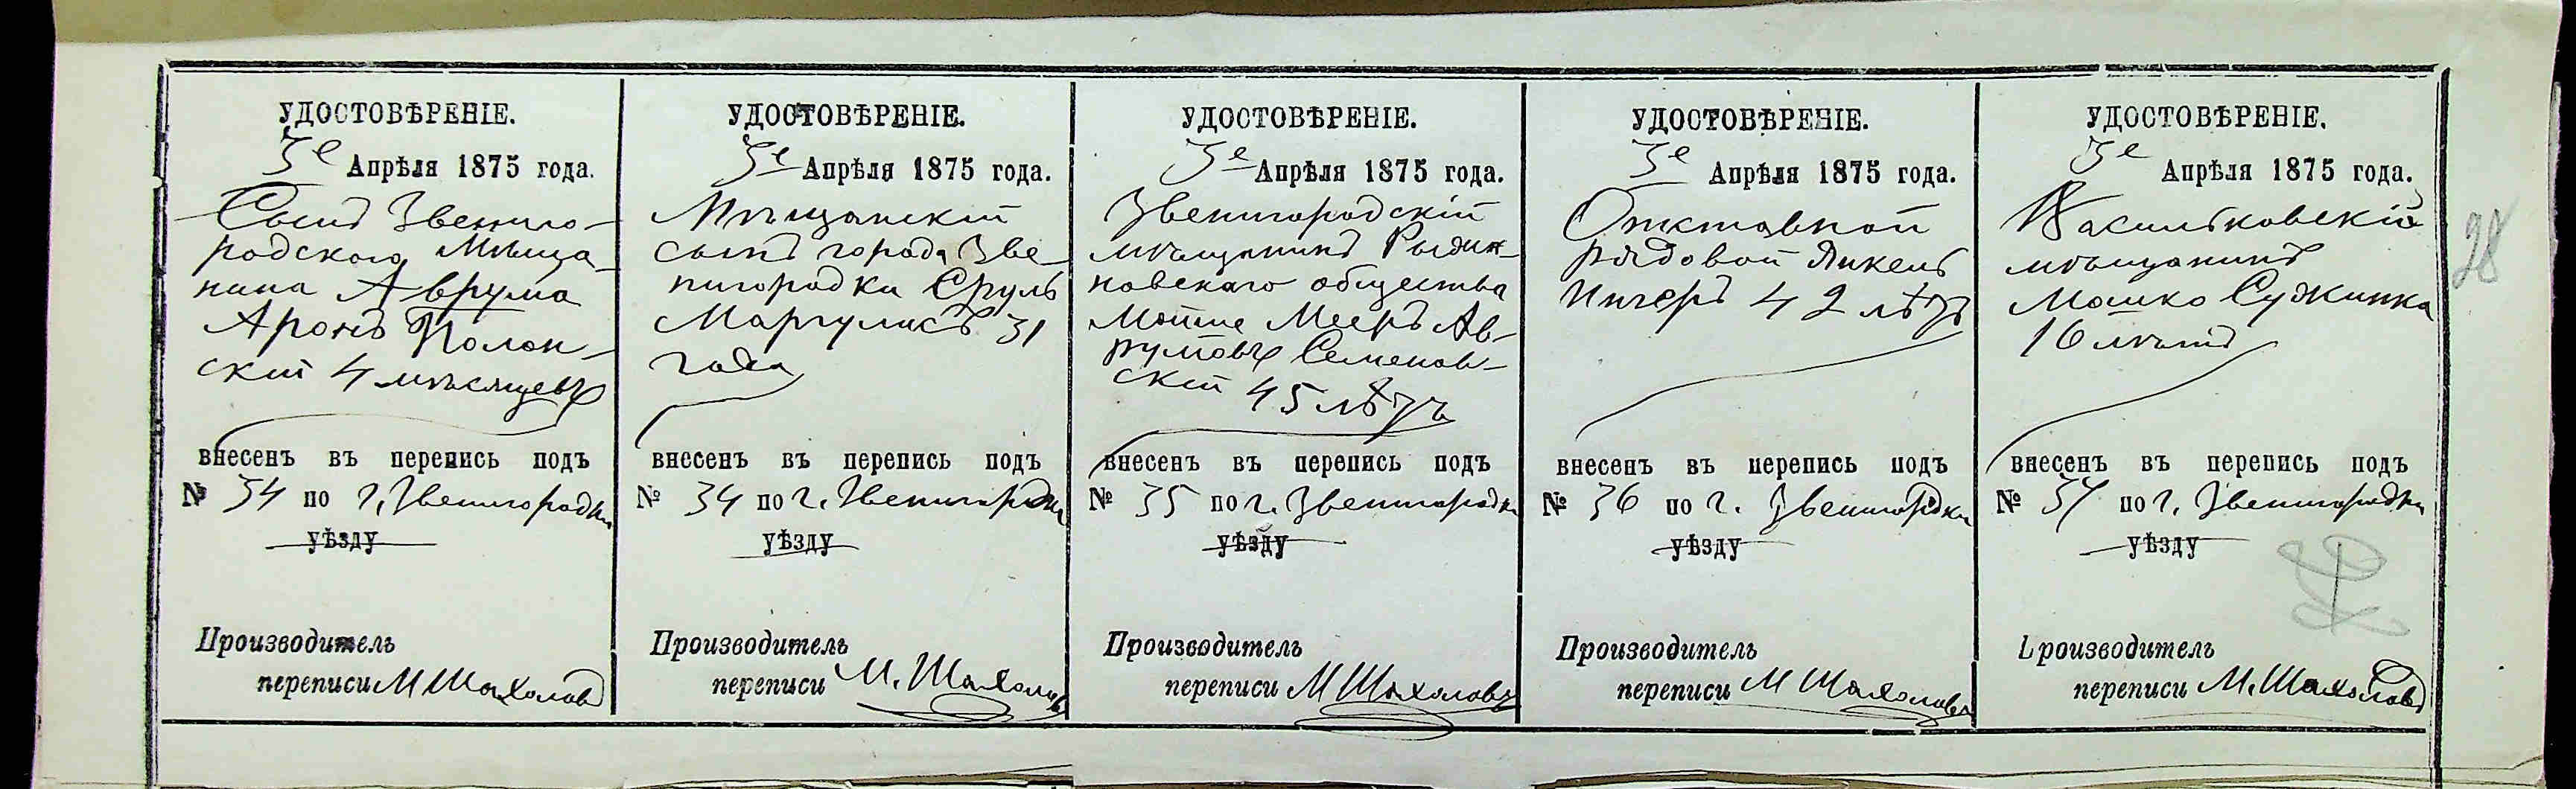 УДОСТОВѢРЕНІЕ.
3е Апрѣля 1875 года.
Сынъ Звениго-
родского Мѣща-
нина Аврума
Аронъ Полон-
скій 4 мѣсяцевъ
внесенъ въ перепись подъ
№ 34 по г. Звенигородки
уѣзду
Производитель
переписи М Шахоловъ
УДОСТОВѢРЕНІЕ.
3е Апрѣля 1875 года.
Мѣщанскій
сынъ города Зве-
нигородки Сруль
Маргулисъ 31
года
внесенъ въ перепись подъ
№ 34 по г. Звенигородки
уѣзду
Производитель
переписи М. Шахоловъ
УДОСТОВѢРЕНІЕ.
3е Апрѣля 1875 года.
Звенигородскій
мѣщанинъ
новскаго общества
Мотие Мееръ Ав-
румовъ Семенов-
скій 45 лѣтъ
внесенъ въ перепись подъ
№ 35 по г. Звенигородки
уѣзду
Производитель
переписи М Шахоловъ
УДОСТОВѢРЕНІЕ.
3е Апрѣля 1875 года.
Отставной
рядовой Янкель
42 лѣтъ
внесенъ въ перепись подъ
№ 36 по г. Звенигородки
уѣзду
Производитель
переписи М Шахоловъ
УДОСТОВѢРЕНІЕ.
3е Апрѣля 1875 года.
Васильковскій
мѣщанинъ
Мошко Сужинка
16 лѣтъ
внесенъ въ перепись подъ
№ 37 по г. Звенигородки
уѣзду
Производитель
переписи М. Шахоловъ
28